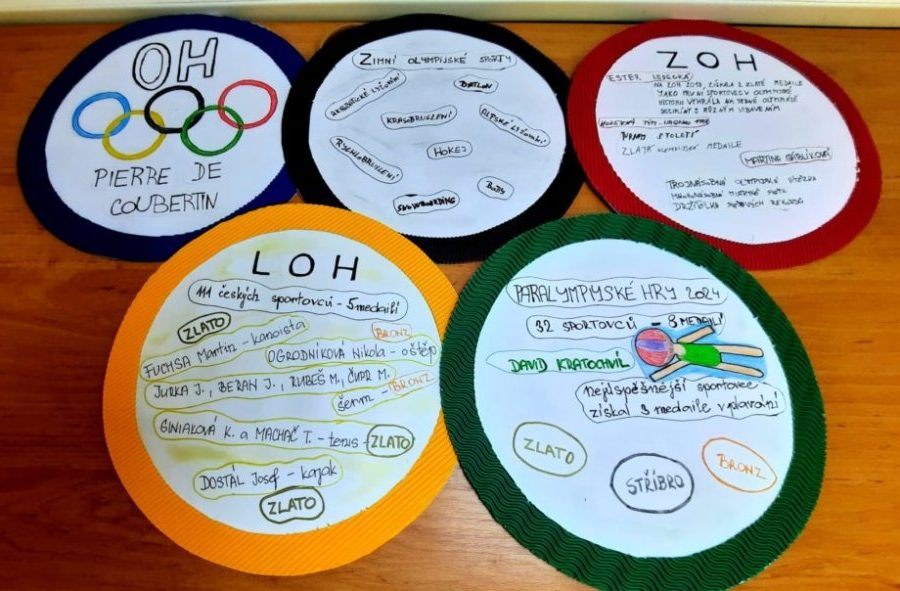 OH
PIERRE DE
COUBERTIN
ZIMNÍ OLYMPIJSKÉ SPORTY
AKROBATICKÉ LYŽOVÁNÍ
BIATLON
KRASOBRUSLENÍ
ALPSKÉ LYŽOVÁNÍ
HOKEJ
RYCHLOBRUSLENÍ
BOBY
SNOWBOARDING
ZOH
ESTER LEDECKÁ
NA ZOH 2018 ZÍSKALA 2 ZLATÉ MEDAILE
JAKO PRVNÍ SPORTOVEC V OLYMPIJSKÉ
HISTORII VYHRÁLA NA JEDNÉ OLYMPIÁDĚ
TURNAJ STOLETÍ
ZLATÁ OLYMPIJSKÁ MEDAILE
MARTINA SÁBLÍKOVÁ
TROJNÁSOBNÁ OLYMPIJSKÁ VÍTĚZKA
DRŽITELKA SVĚTOVÝCH REKORDŮ
LOH
111 českých sportovců - 5 medailí
ZLATO
FUCHSA Martin - kanoista
BRONZ
OGRODNÍKOVÁ Nikola - oštěp
JURKA J., BERAN J., RUBEŠ M., ČUPR M.
šerm - BRONZ
SINIAKOVÁ K. a MACHAČ T. - tenis - ZLATO
DOSTÁL Josef - kajak
ZLATO
PARALYMPIJSKÉ HRY 2024
32 SPORTOVCŮ - 8 MEDAILÍ
DAVID KRATOCHVÍL
nejúspěšnější sportovec
získal 3 medaile v plavání
ZLATO
STŘÍBRO
BRONZ